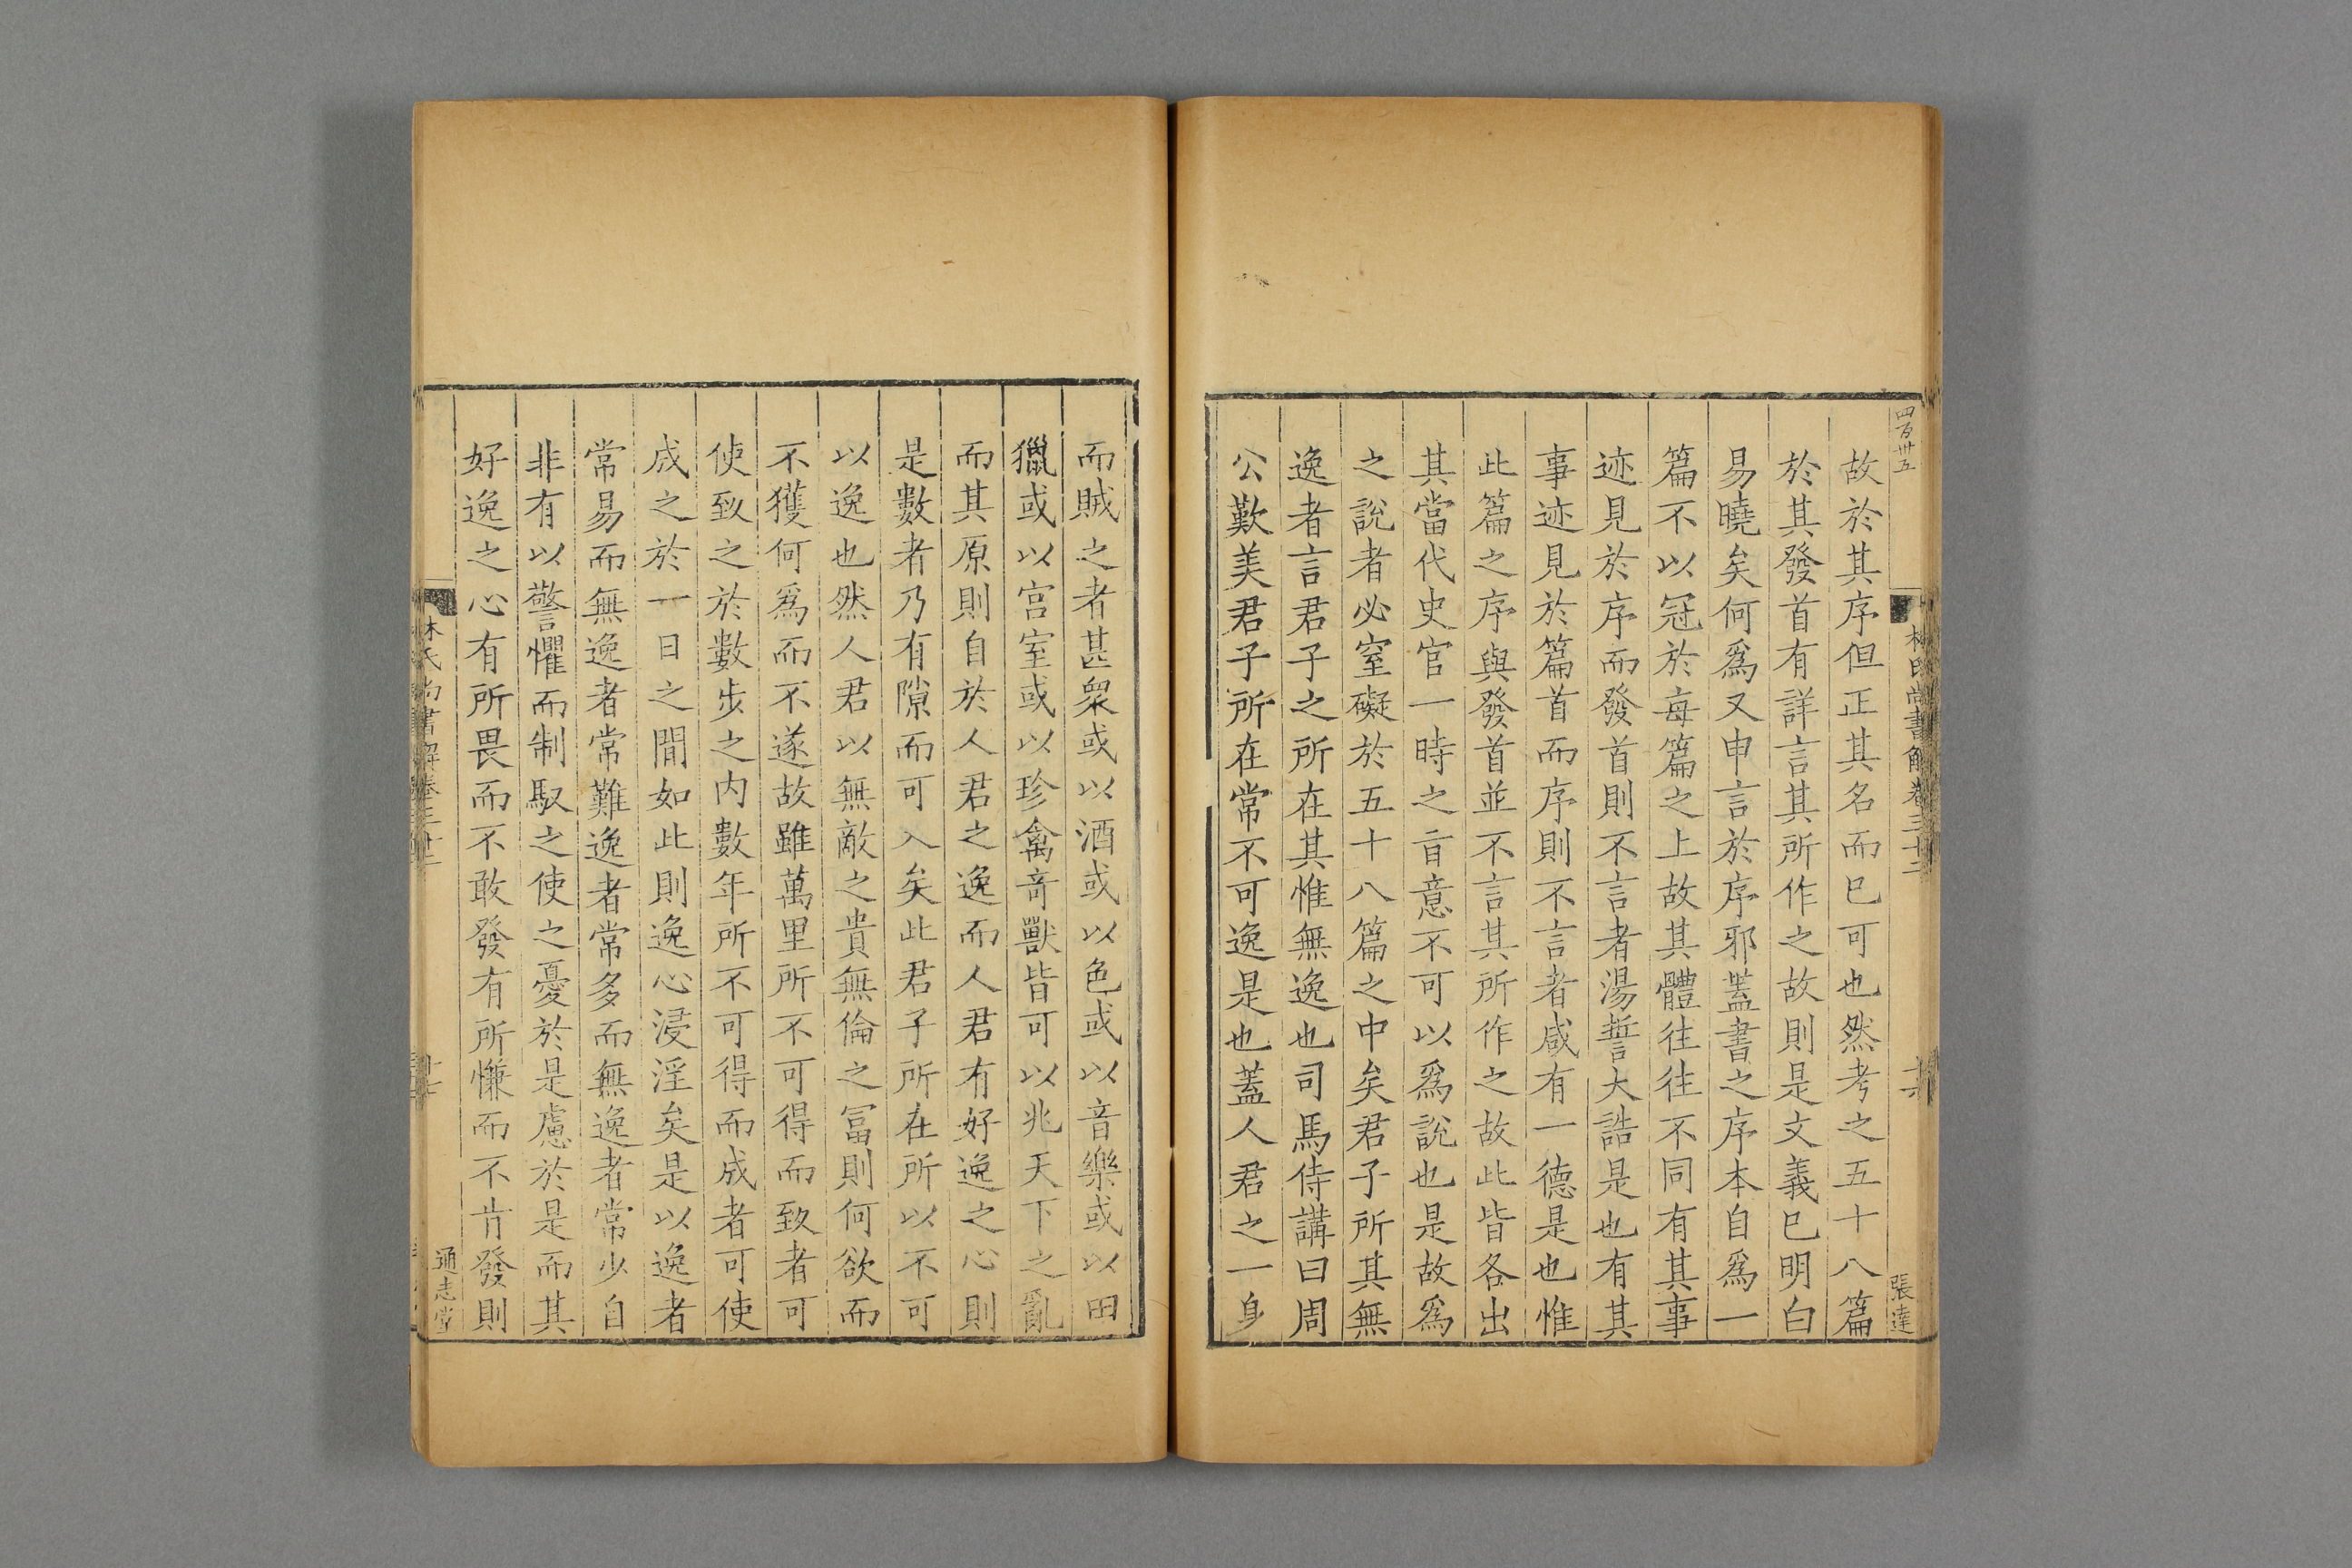 四百卅五
林氏尚書解卷三十二
張達
故於其序但正其名而已可也然考之五十八篇
於其發首有詳言其所作之故則是文義已明白
易曉矣何爲又申言於序邪葢書之序本自爲一
篇不以冠於每篇之上故其體往往不同有其事
迹見於序而發首則不言者湯誓大誥是也有其
事迹見於篇首而序則不言者咸有一德是也惟
此篇之序與發首並不言其所作之故此皆各出
其當代史官一時之㫖意不可以爲說也是故爲
之說者必窒礙於五十八篇之中矣君子所其無
逸者言君子之所在其惟無逸也司馬侍講曰周
公歎美君子所在常不可逸是也蓋人君之一身
而賊之者甚衆或以酒或以色或以音樂或以田
獵或以宫室或以珍禽竒獸皆可以兆天下之亂
而其原則自於人君之逸而人君有好逸之心則
是數者乃有隙而可入矣此君子所在所以不可
以逸也然人君以無敵之貴無倫之冨則何欲而
不獲何爲而不遂故雖萬里所不可得而致者可
使致之於數步之内數年所不可得而成者可使
成之於一日之間如此則逸心浸淫矣是以逸者
常易而無逸者常難逸者常多而無逸者常少自
非有以警懼而制馭之使之憂於是慮於是而其
好逸之心有所畏而不敢發有所慊而不肯發則
林氏尚書解卷三十二
通志堂